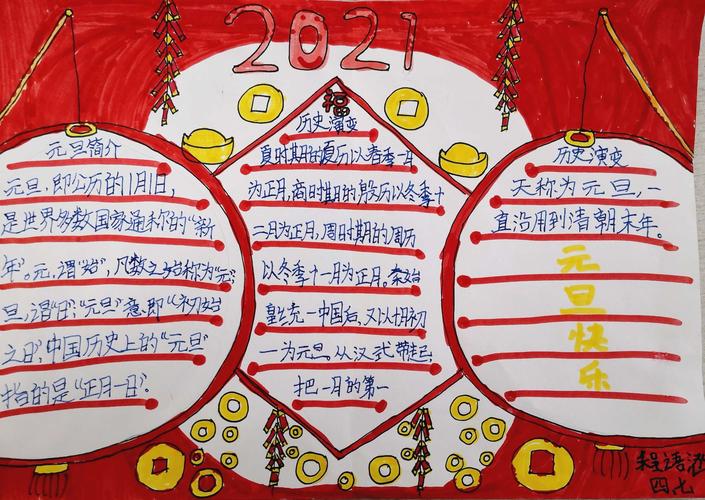 2021
元旦简介
元旦,即公历的1月1日,
是世界多数国家通称的“新
年”。元,谓“始”,凡数之始称为“元”;
旦,谓“日”;“元旦”意即“初始
之日”,中国历史上的“元旦”
指的是“正月一日”。
福
历史演变
夏时期的夏历以春季一年
为正月,商时期的殷历以冬季十
二月为正月,周时期的周历
以冬季十一月为正月。秦始
皇统一中国后,又以十月初
一为元旦,从汉武帝起,
把一月的第一
历史演变
天称为元旦,一
直沿用到清朝末年。
元
旦
快
乐
程语
四七